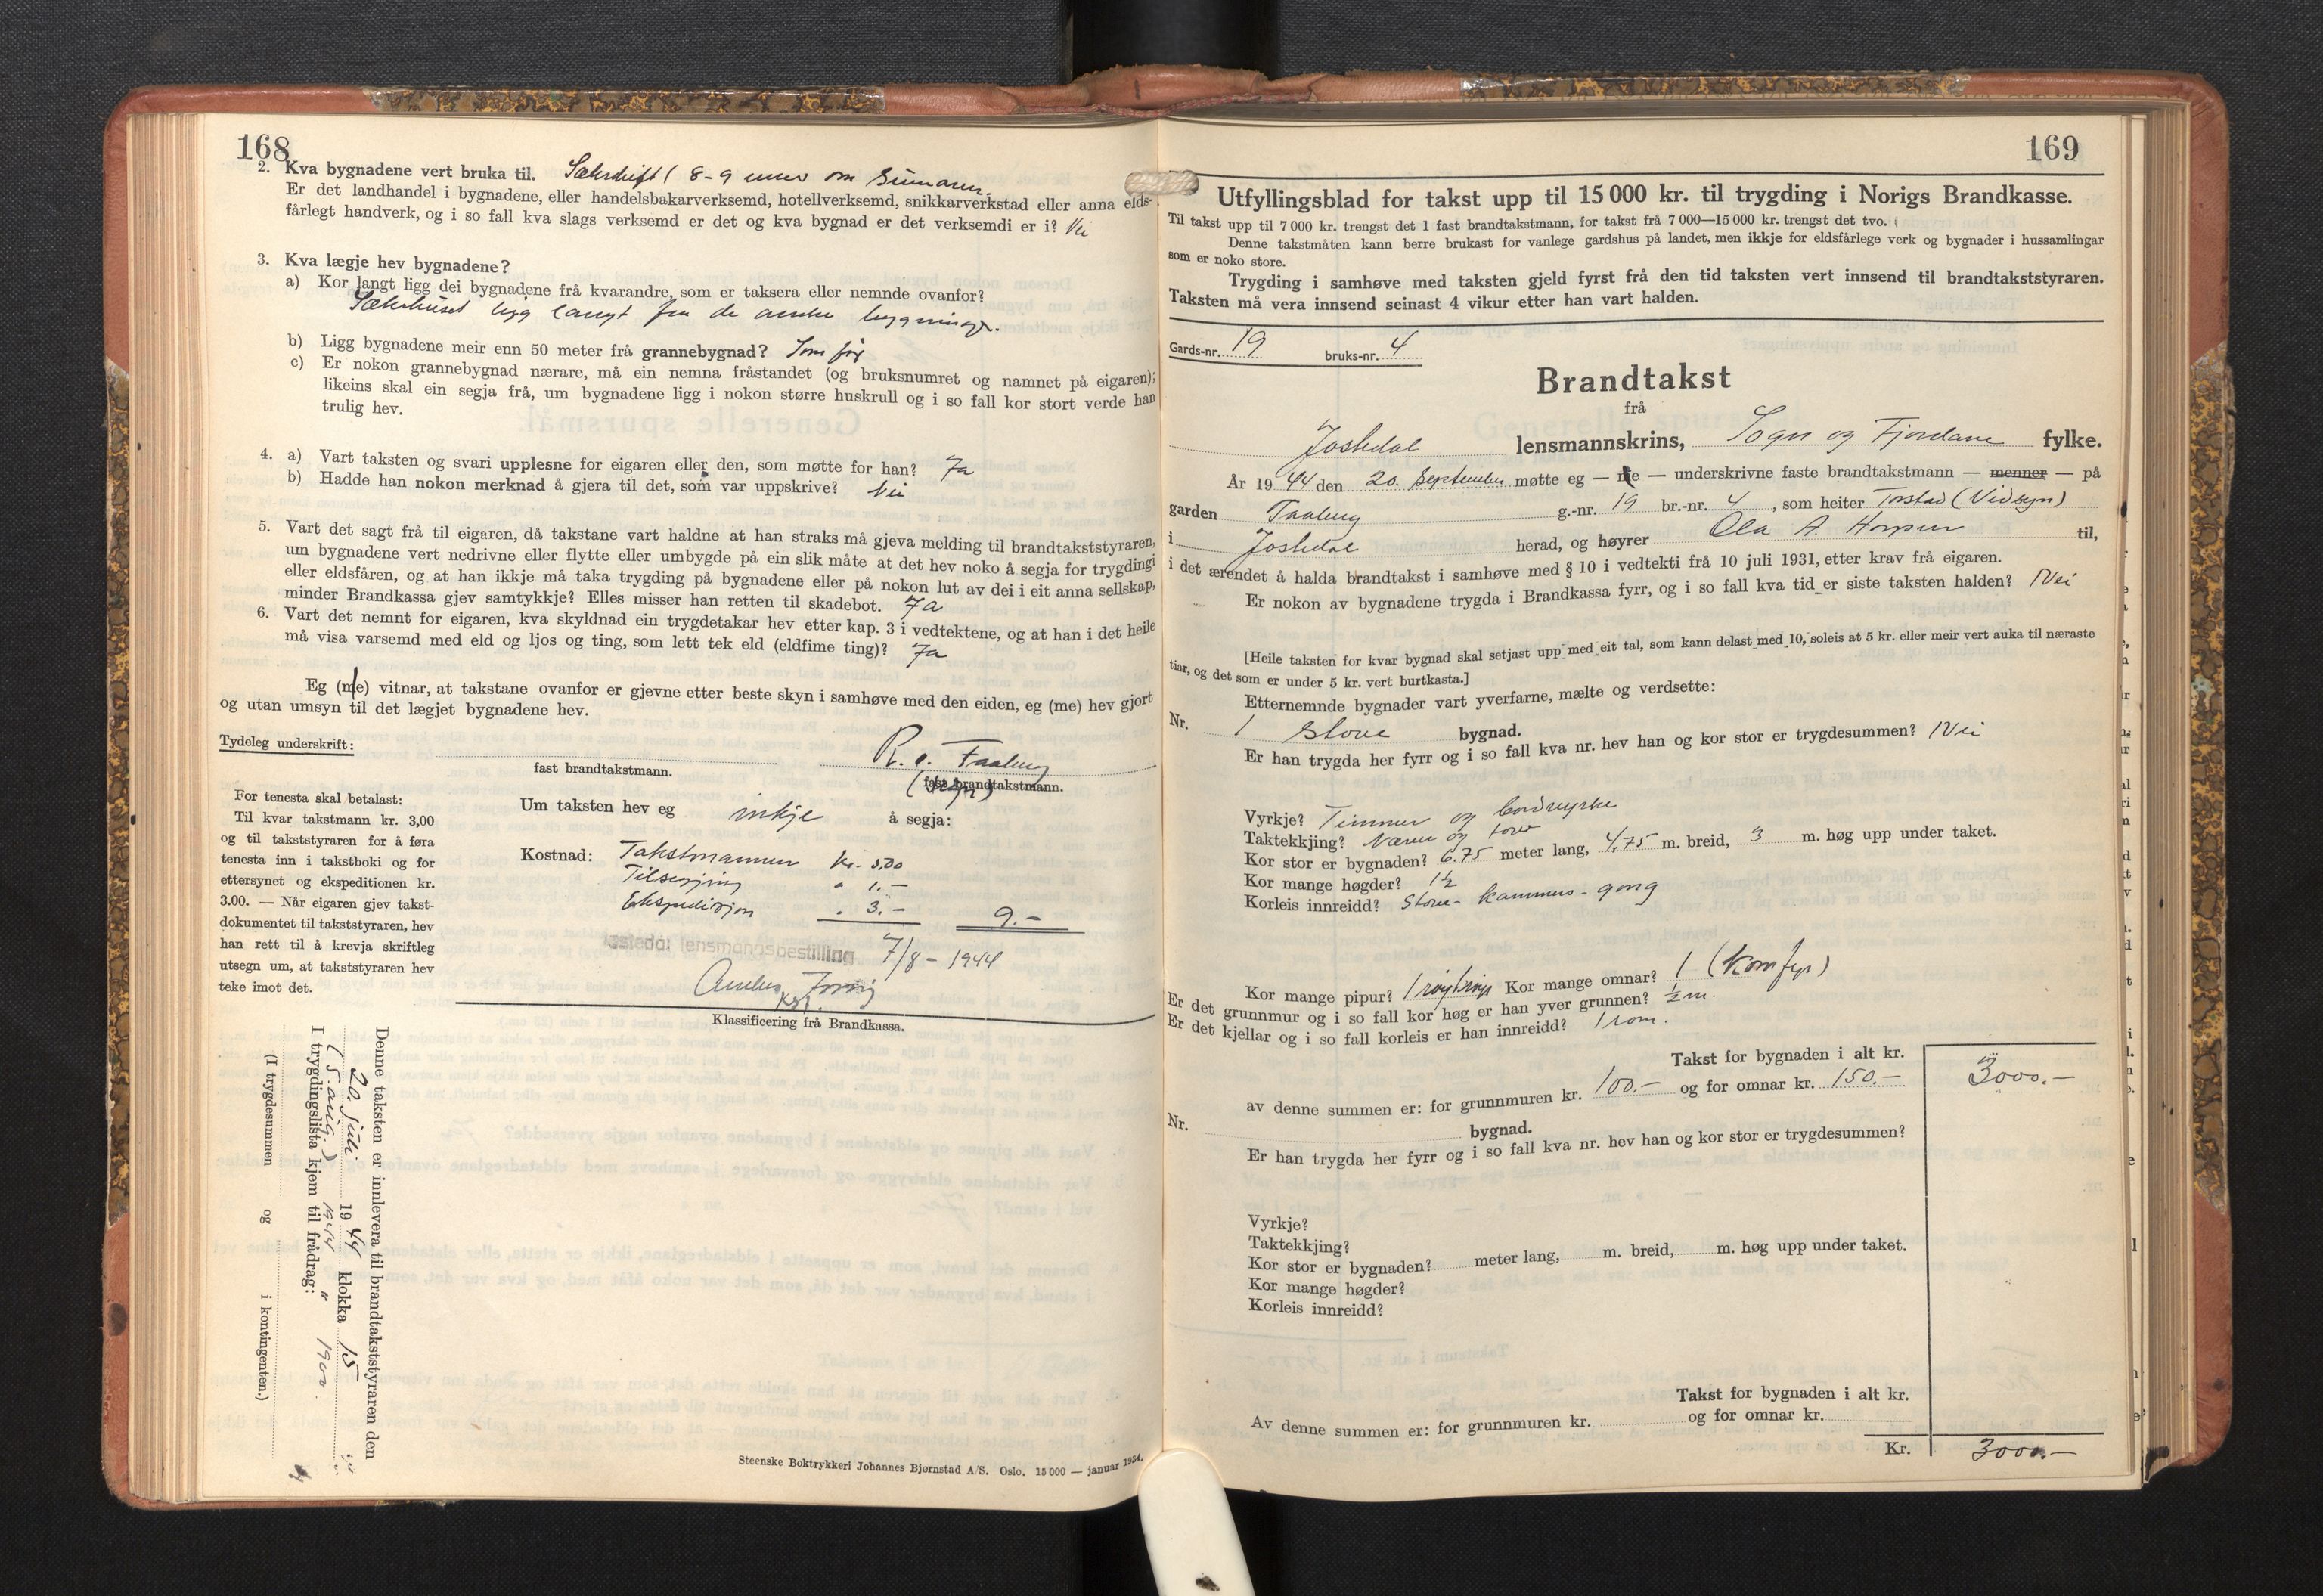 168
2. Kva bygnadene vert bruka til. Sæterdrift ( 8-9 om
Er det landhandel i bygnadene, eller handelsbakarverksemd, hotellverksemd, snikkarverkstad eller anna elds-
fårlegt handverk, og i so fall kva slags verksemd er det og kva bygnad er det verksemdi er i? Nei
3. Kva lægje hev bygnadene?
a) Kor langt ligg dei bygnadene frå kvarandre, som er taksera eller nemnde ovanfor?
Sæterhuset ligg langt fra de andre bygninger.
b) Ligg bygnadene meir enn 50 meter frå grannebygnad? Som før
c) Er nokon grannebygnad nærare, må ein nemna fråstandet (og bruksnumret og namnet på eigaren);
likeins skal ein segja frå, um bygnadene ligg i nokon større huskrull og i so fall kor stort verde han
trulig hev.
4. a) Vart taksten og svari upplesne for eigaren eller den, som møtte for han? Ja
b) Hadde han nokon merknad å gjera til det, som var uppskrive? Nei
5. Vart det sagt frå til eigaren, då takstane vart haldne at han straks må gjeva melding til brandtakststyraren,
um bygnadene vert nedrivne eller flytte eller umbygde på ein slik måte at det hev noko å segja for trygdingi
eller eldsfåren, og at han ikkje må taka trygding på bygnadene eller på nokon lut av dei i eit anna sellskap,
minder Brandkassa gjev samtykkje? Elles misser han retten til skadebot. Ja
6. Vart det nemnt for eigaren, kva skyldnad ein trygdetakar hev etter kap. 3 i vedtektene, og at han i det heile
må visa varsemd med eld og ljos og ting, som lett tek eld (eldfime ting)? Ja
Eg (me) vitnar, at takstane ovanfor er gjevne etter beste skyn i samhøve med den eiden, eg (me) hev gjort
og utan umsyn til det lægjet bygnadene hev.
Tydeleg underskrift: R. o. Faaberg
fast brandtakstmann. fast brandtakstmann.
For tenesta skal betalast:
Til kvar takstmann kr. 3,00
og til takststyraren for å føra
tenesta inn i takstboki og for
ettersynet og ekspeditionen kr.
3.00. — Når eigaren gjev takst-
dokumentet til takststyraren, hev
han rett til å krevja skriftleg
utsegn um, at takststyraren hev
teke imot det.
Um taksten hev eg inkje å segja:
Kostnad: Takstmannen Kr.
Tilsegjing " 1.-
Ekspedisjon " 3.- 9.-
Jostedal lensmannsbestilling 7/8 - 1944
Klassificering frå Brandkassa.
Denne taksten er innlevera til brandtakststyraren den
20. juli 1944 klokka 15
(5. aug.) 1944 "
I trygdingslista kjem til frådrag:
(I trygdesummen og i kontingenten.)
Steenske Boktrykkeri Johannes Bjørnstad A/S. Oslo. 15 000 — januar 1934.
169
Utfyllingsblad for takst upp til 15 000 kr. til trygding i Norigs Brandkasse.
Til takst upp til 7 000 kr. trengst det 1 fast brandtakstmann, for takst frå 7 000—15 000 kr. trengst det tvo.
Denne takstmåten kann berre brukast for vanlege gardshus på landet, men ikkje for eldsfårlege verk og bygnader i hussamlingar
som er noko store.
Trygding i samhøve med taksten gjeld fyrst frå den tid taksten vert innsend til brandtakststyraren.
Taksten må vera innsend seinast 4 vikur etter han vart halden.
Gards-nr. 19 bruks-nr. 4
Brandtakst
frå
Jostedal lensmannskrins, Sogn og Fjordane fylke.
År 1944 den 20. September møtte eg — me — underskrivne faste brandtakstmann — menner — på
garden Faaberg g.-nr. 19 br.-nr. 4, som heiter Torstad (Vidsyn)
i Jostedal herad, og høyrer Ola A. til,
i det ærendet å halda brandtakst i samhøve med § 10 i vedtekti frå 10 juli 1931, etter krav frå eigaren.
Er nokon av bygnadene trygda i Brandkassa fyrr, og i so fall kva tid er siste taksten halden? Nei
[Heile taksten for kvar bygnad skal setjast upp med eit tal, som kann delast med 10, soleis at 5 kr. eller meir vert auka til næraste
tiar, og det som er under 5 kr. vert burtkasta.]
Etternemnde bygnader vart yverfarne, mælte og verdsette:
Nr. 1 Stove bygnad.
Er han trygda her fyrr og i so fall kva nr. hev han og kor stor er trygdesummen? Nei
Vyrkje? Timmer og bordvyrke
Taktekkjing? Never og torv
Kor stor er bygnaden? 6.75 meter lang, 4.75 m. breid, 3 m. høg upp under taket.
Kor mange høgder? 1½
Korleis innreidd? Stove - kammers - gong
Kor mange pipur? 1 Kor mange omnar? 1 (Komfyr)
Er det grunnmur og i so fall kor høg er han yver grunnen? ½ m.
Er det kjellar og i so fall korleis er han innreidd? 1 rom.
Takst for bygnaden i alt kr. 3000.-
av denne summen er: for grunnmuren kr. 100.- og for omnar kr. 150.-
Nr. bygnad.
Er han trygda her fyrr og i so fall kva nr. hev han og kor stor er trygdesummen?
Vyrkje?
Taktekkjing?
Kor stor er bygnaden? meter lang, m. breid, m. høg upp under taket.
Kor mange høgder?
Korleis innreidd?
Takst for bygnaden i alt kr.
Av denne summen er: for grunnmuren kr. og for omnar kr.
Kr. 3000.-